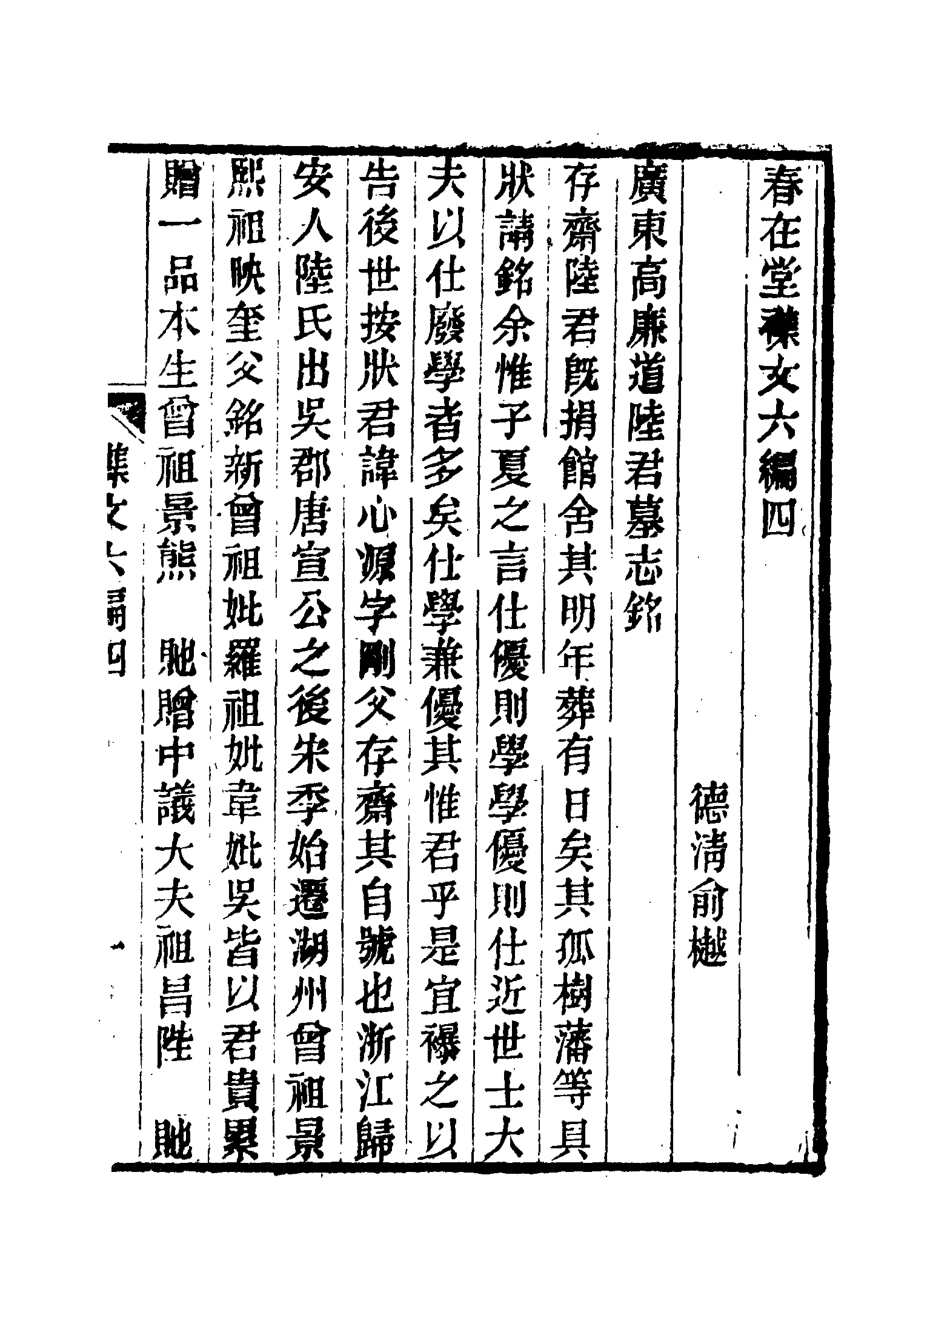 春在堂襍文六編四
德清俞樾
廣東高廉道陸君墓志銘
存齋陸君旣捐館舍其明年葬有日矣其孤樹藩等具
狀請銘余惟子夏之言仕優則學學優則仕近世士大
夫以仕廢學者多矣仕學兼優其惟君乎是宜襮之以
告後世按狀君諱心源字剛父存齋其自號也浙江歸
安人陸氏出吳郡唐宣公之後宋季始遷湖州曾祖景
熙祖映奎父銘新曾祖妣羅祖妣韋妣吳皆以君貴累
贈一品本生曾祖景熊 貤贈中議大夫祖昌陞 貤
襍文六編四 一